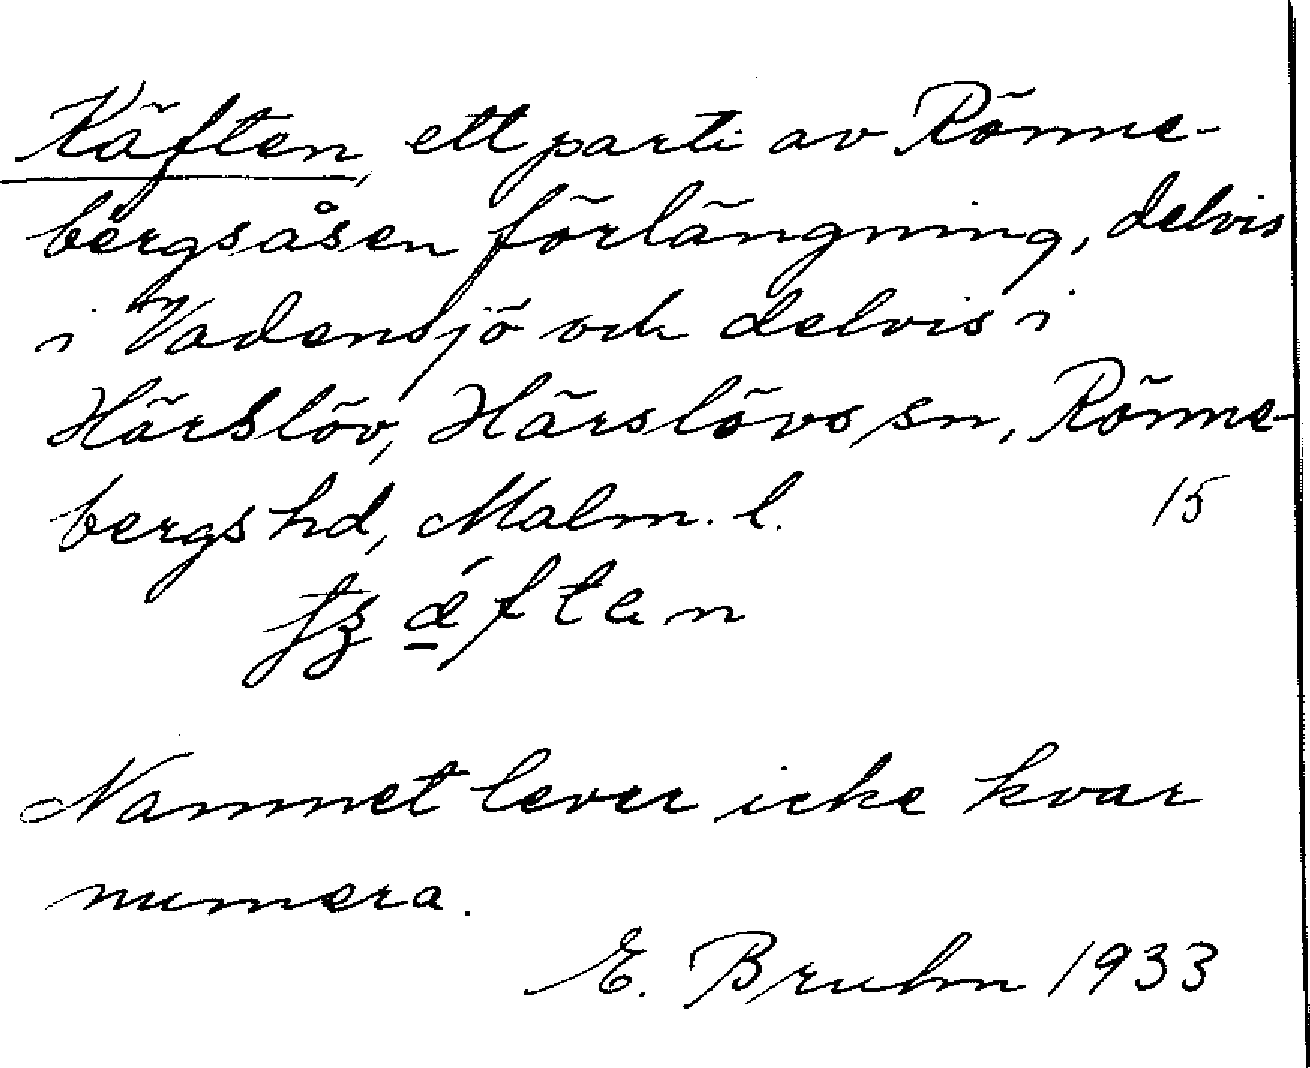 Käften, ett parti av Rönne-
bergsåsen förlängning, delvis
i Vadensjö och delvis i
Härslöv, Härslövs sn, Rönne-
bergs hd, Malm. l. 15
Namnet lever icke kvar
numera.
E. Bruhn 1933